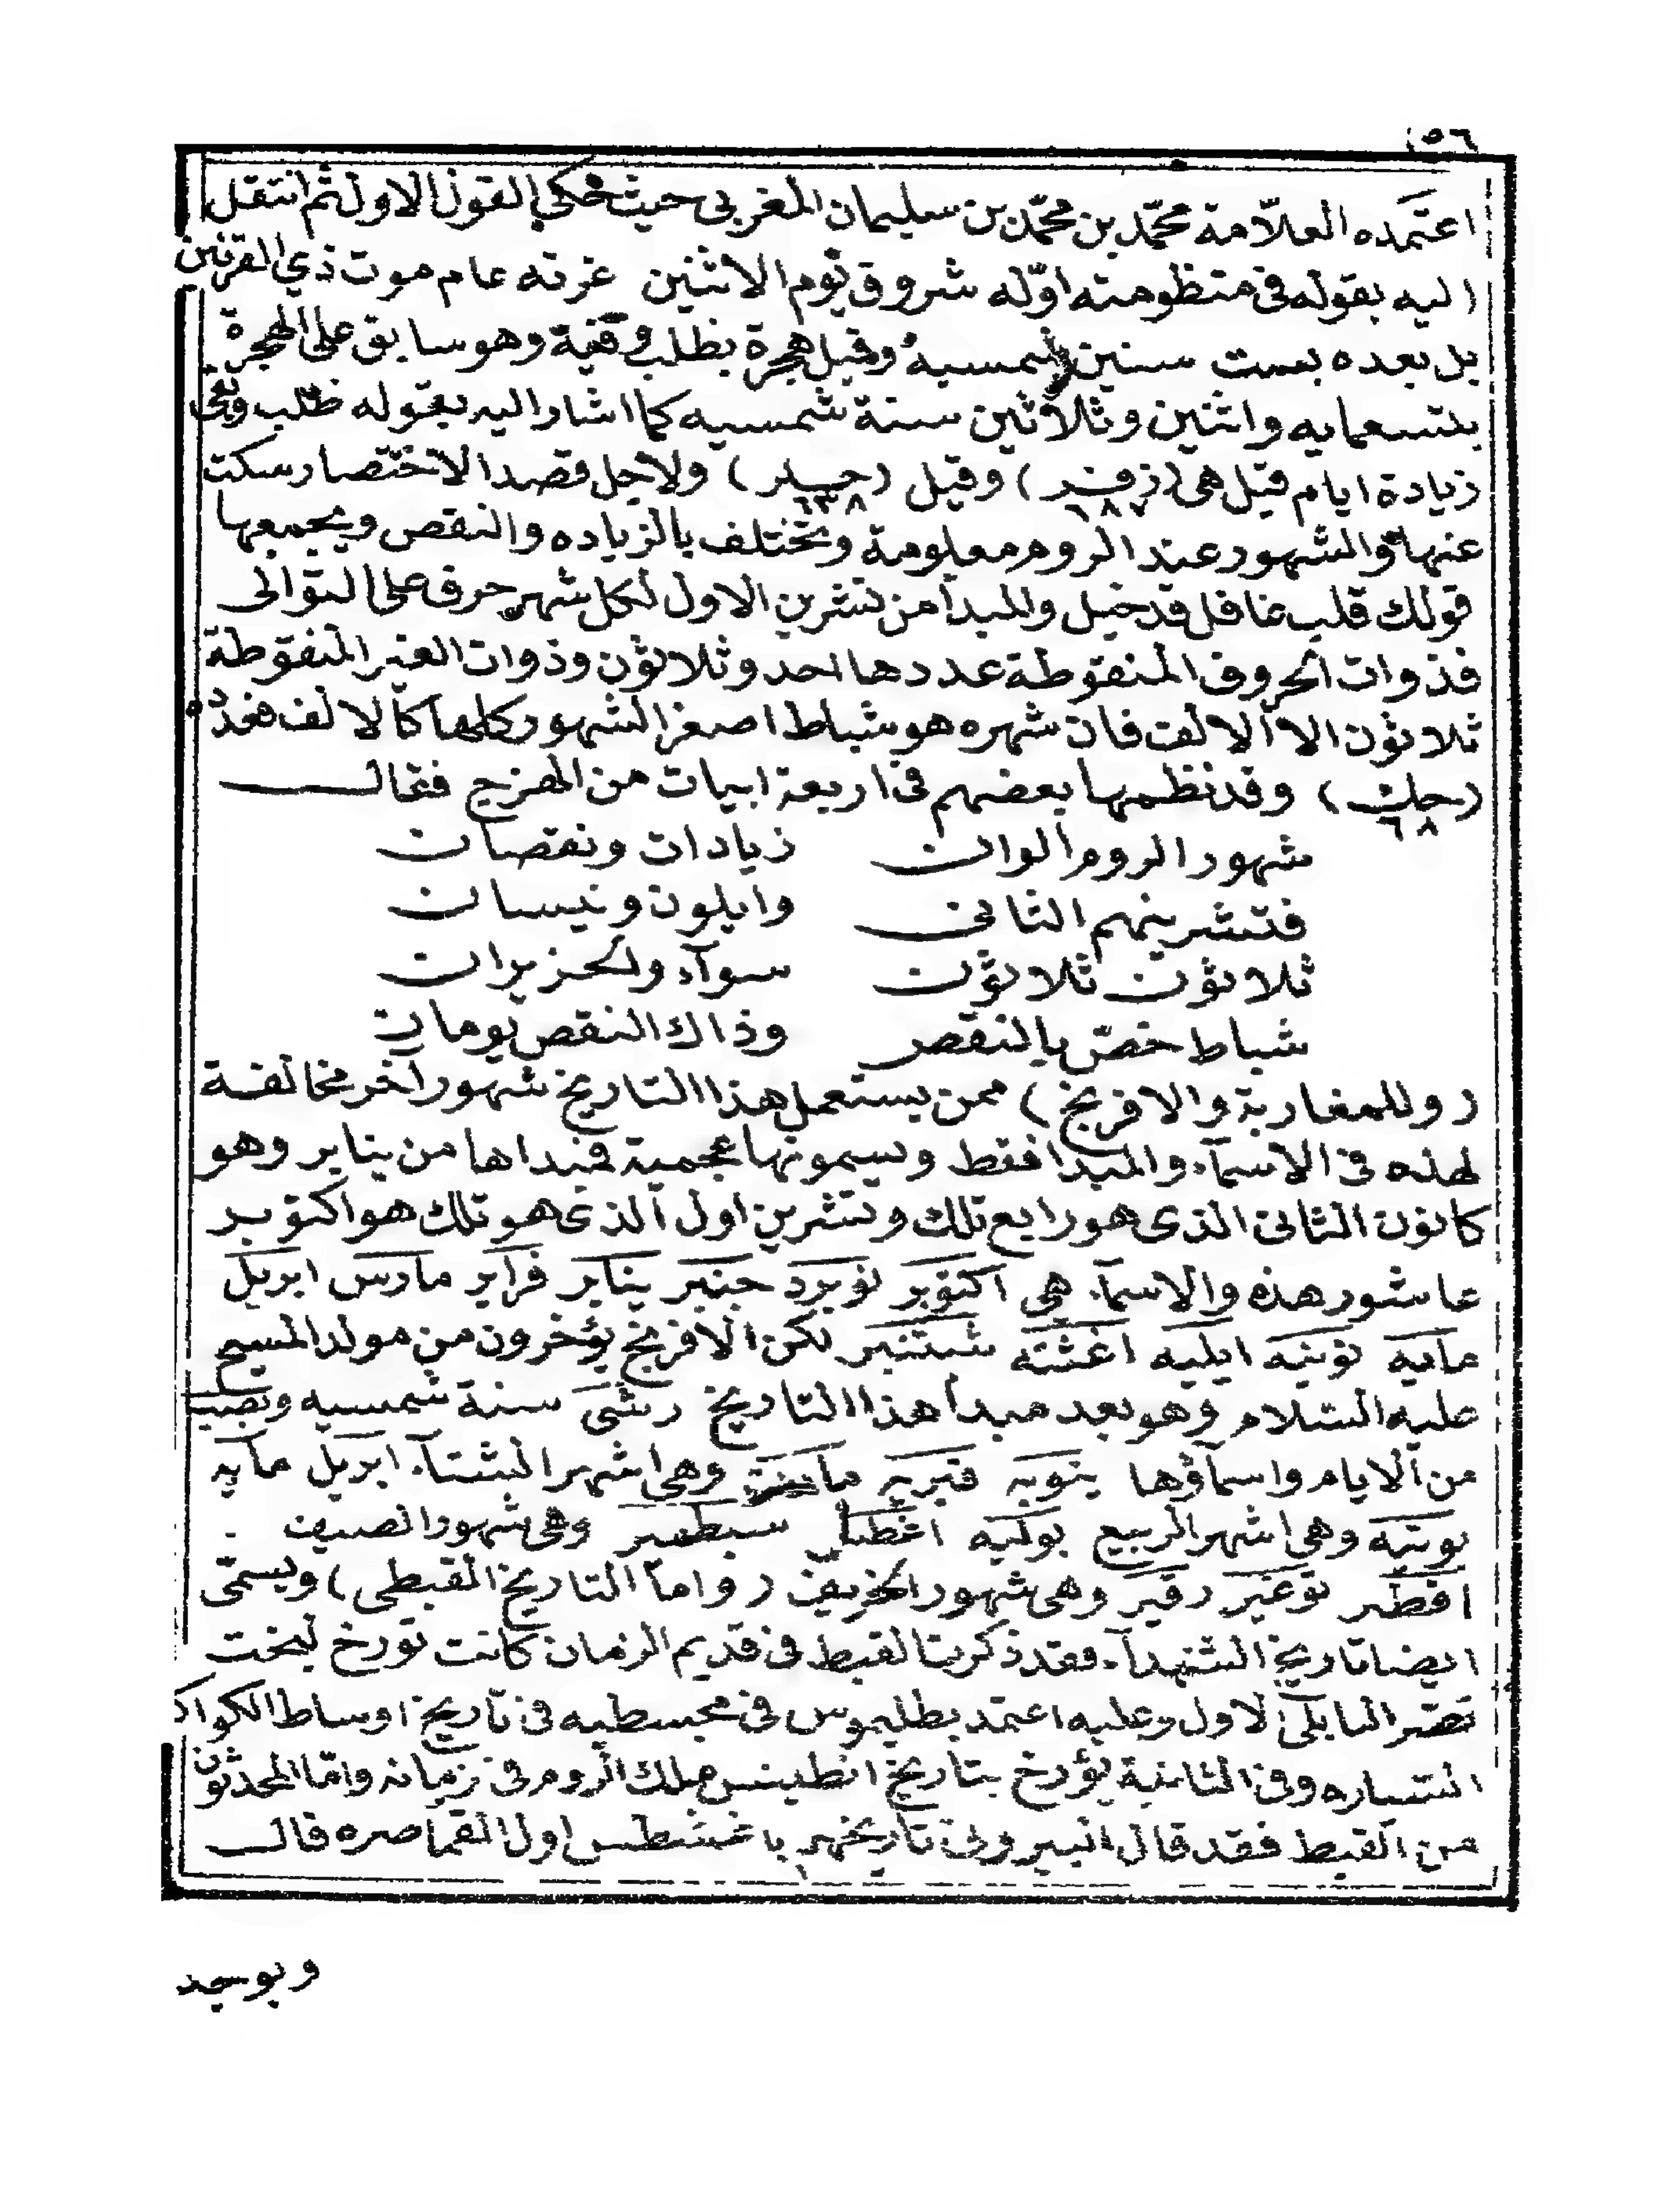 ٥٦
اعتمده العلّامة محمّد بن محمّد بن سليمان المغربى حيث حكى القول الاول ثم انتقل
اليه بقوله فى منظومته اوّله شروق يوم الاثنين غرته عام موت ذي القرنين
بل بعده بست سنين شمسيه وقيل هجرة بظلب وقفية وهو سابق على الهجرة
بتسعمايه واثنين وثلاثين سنة شمسيه كما اشار اليه بقوله ظلب وفى
زيادة ايام قيل هى (زفر) وقيل (حلر) ولاجل قصد الاختصار سكت
١٨٧ ٦٣٨
عنها والشهور عند الروم معلومة وتختلف بالزياده والنقص ويجمعها
قولك قلب غافل قد خيل والمبدأ من تشرين الاول لكل شهر حرف على التوالى
فذوات الحروف المنقوطة عددها احد وثلاثون وذوات الغير المنقوطة
ثلاثون الا الالف فان شهره هو شباط اصغر الشهور كلها كالالف فعدده
(حك) وقد نظمها بعضهم فى اربعة ابيات من الهزج فقال
٦٨
شهور الروم الوان زيادات ونقصان
فتشرينهم الثانى وايلون ونيسان
ثلاثون ثلاثون سوآء وحزيران
شباط خصّ بالنقص وذاك النقص يومان
(وللمغاربة والافرنج) ممن يستعمل هذا التاريخ شهور آخر مخالفة
لهذه فى الاسمآء والمبدا فقط ويسمونها عجمية فمبداها من يناير وهو
كانون الثانى الذى هو رابع تلك وتشرين اول الذى هو تلك هو اكتوبر
عاشور هذه والاسمآء هى اكتوبر نوبرد جنبر يناير فراير مارس ابريل
مايه يونيه ايليه اغشته شتنبر لكن الافرنج يؤخرون من مولد المسيح
عليه السلام وهو بعد مبدأ هذا التاريخ رشى سنة شمسيه ونصب
من الايام واسمآؤها ينويه فبريه وهى اشهر الشتآء ابريل مايه
يونيه وهى اشهر الربيع يوليه وهى شهور الصيف
اقطبر نوغبر دقبر وهى شهور الخريف (واما التاريخ القبطى) ويسمّى
ايضا تاريخ الشهدآء فقد ذكرتا لقبط فى قديم الزمان كانت تورخ لبخت
نصر البابلى الاول وعليه اعتمد بطليموس فى مجسطيه فى تاريخ اوساط الكواكب
السياره وفى الثانية يؤرخ بتاريخ انطينس ملك الروم فى زمانه وامّا المحدثون
من القبط فقد قال البيرونى تاريخهم باغشطس اول القياصره قال
ويوجد